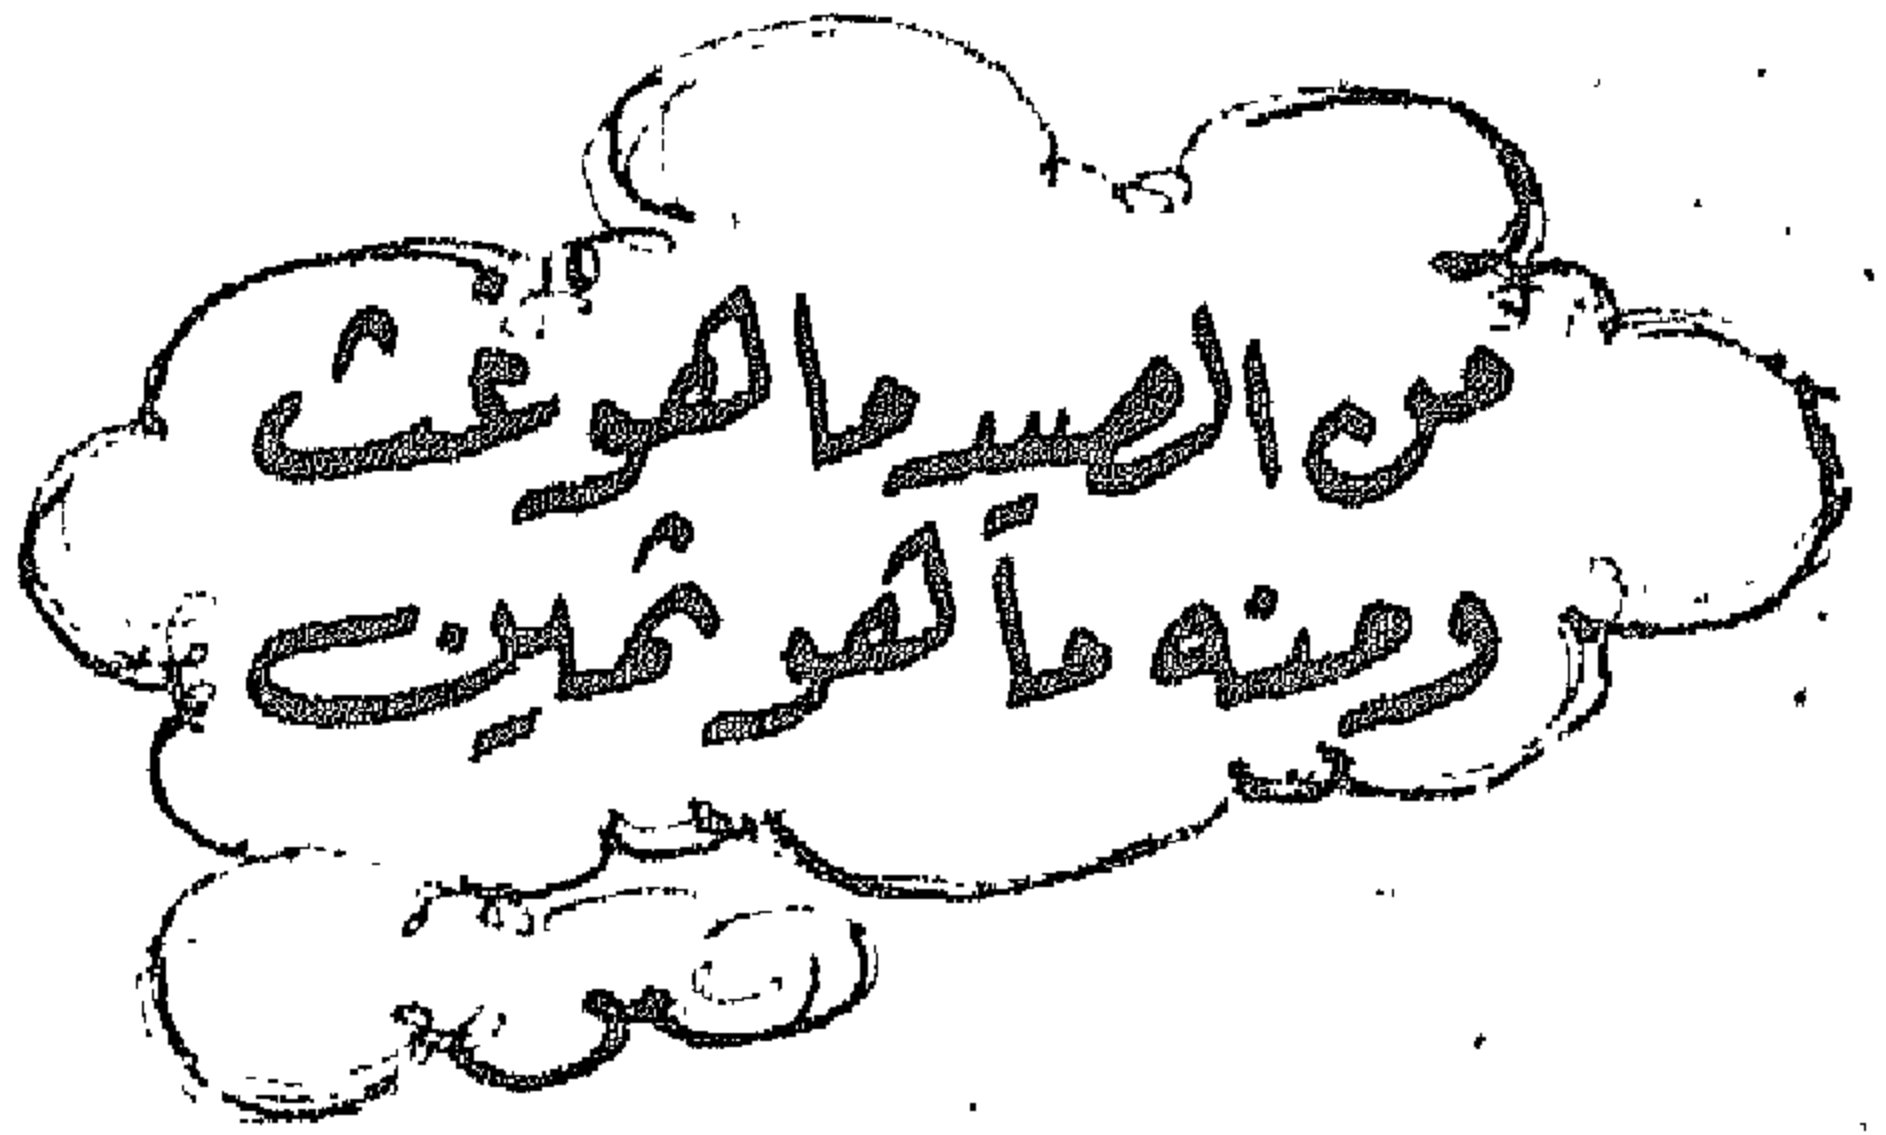 من الصيد ما هو غث
ومنه ما هو ثمين